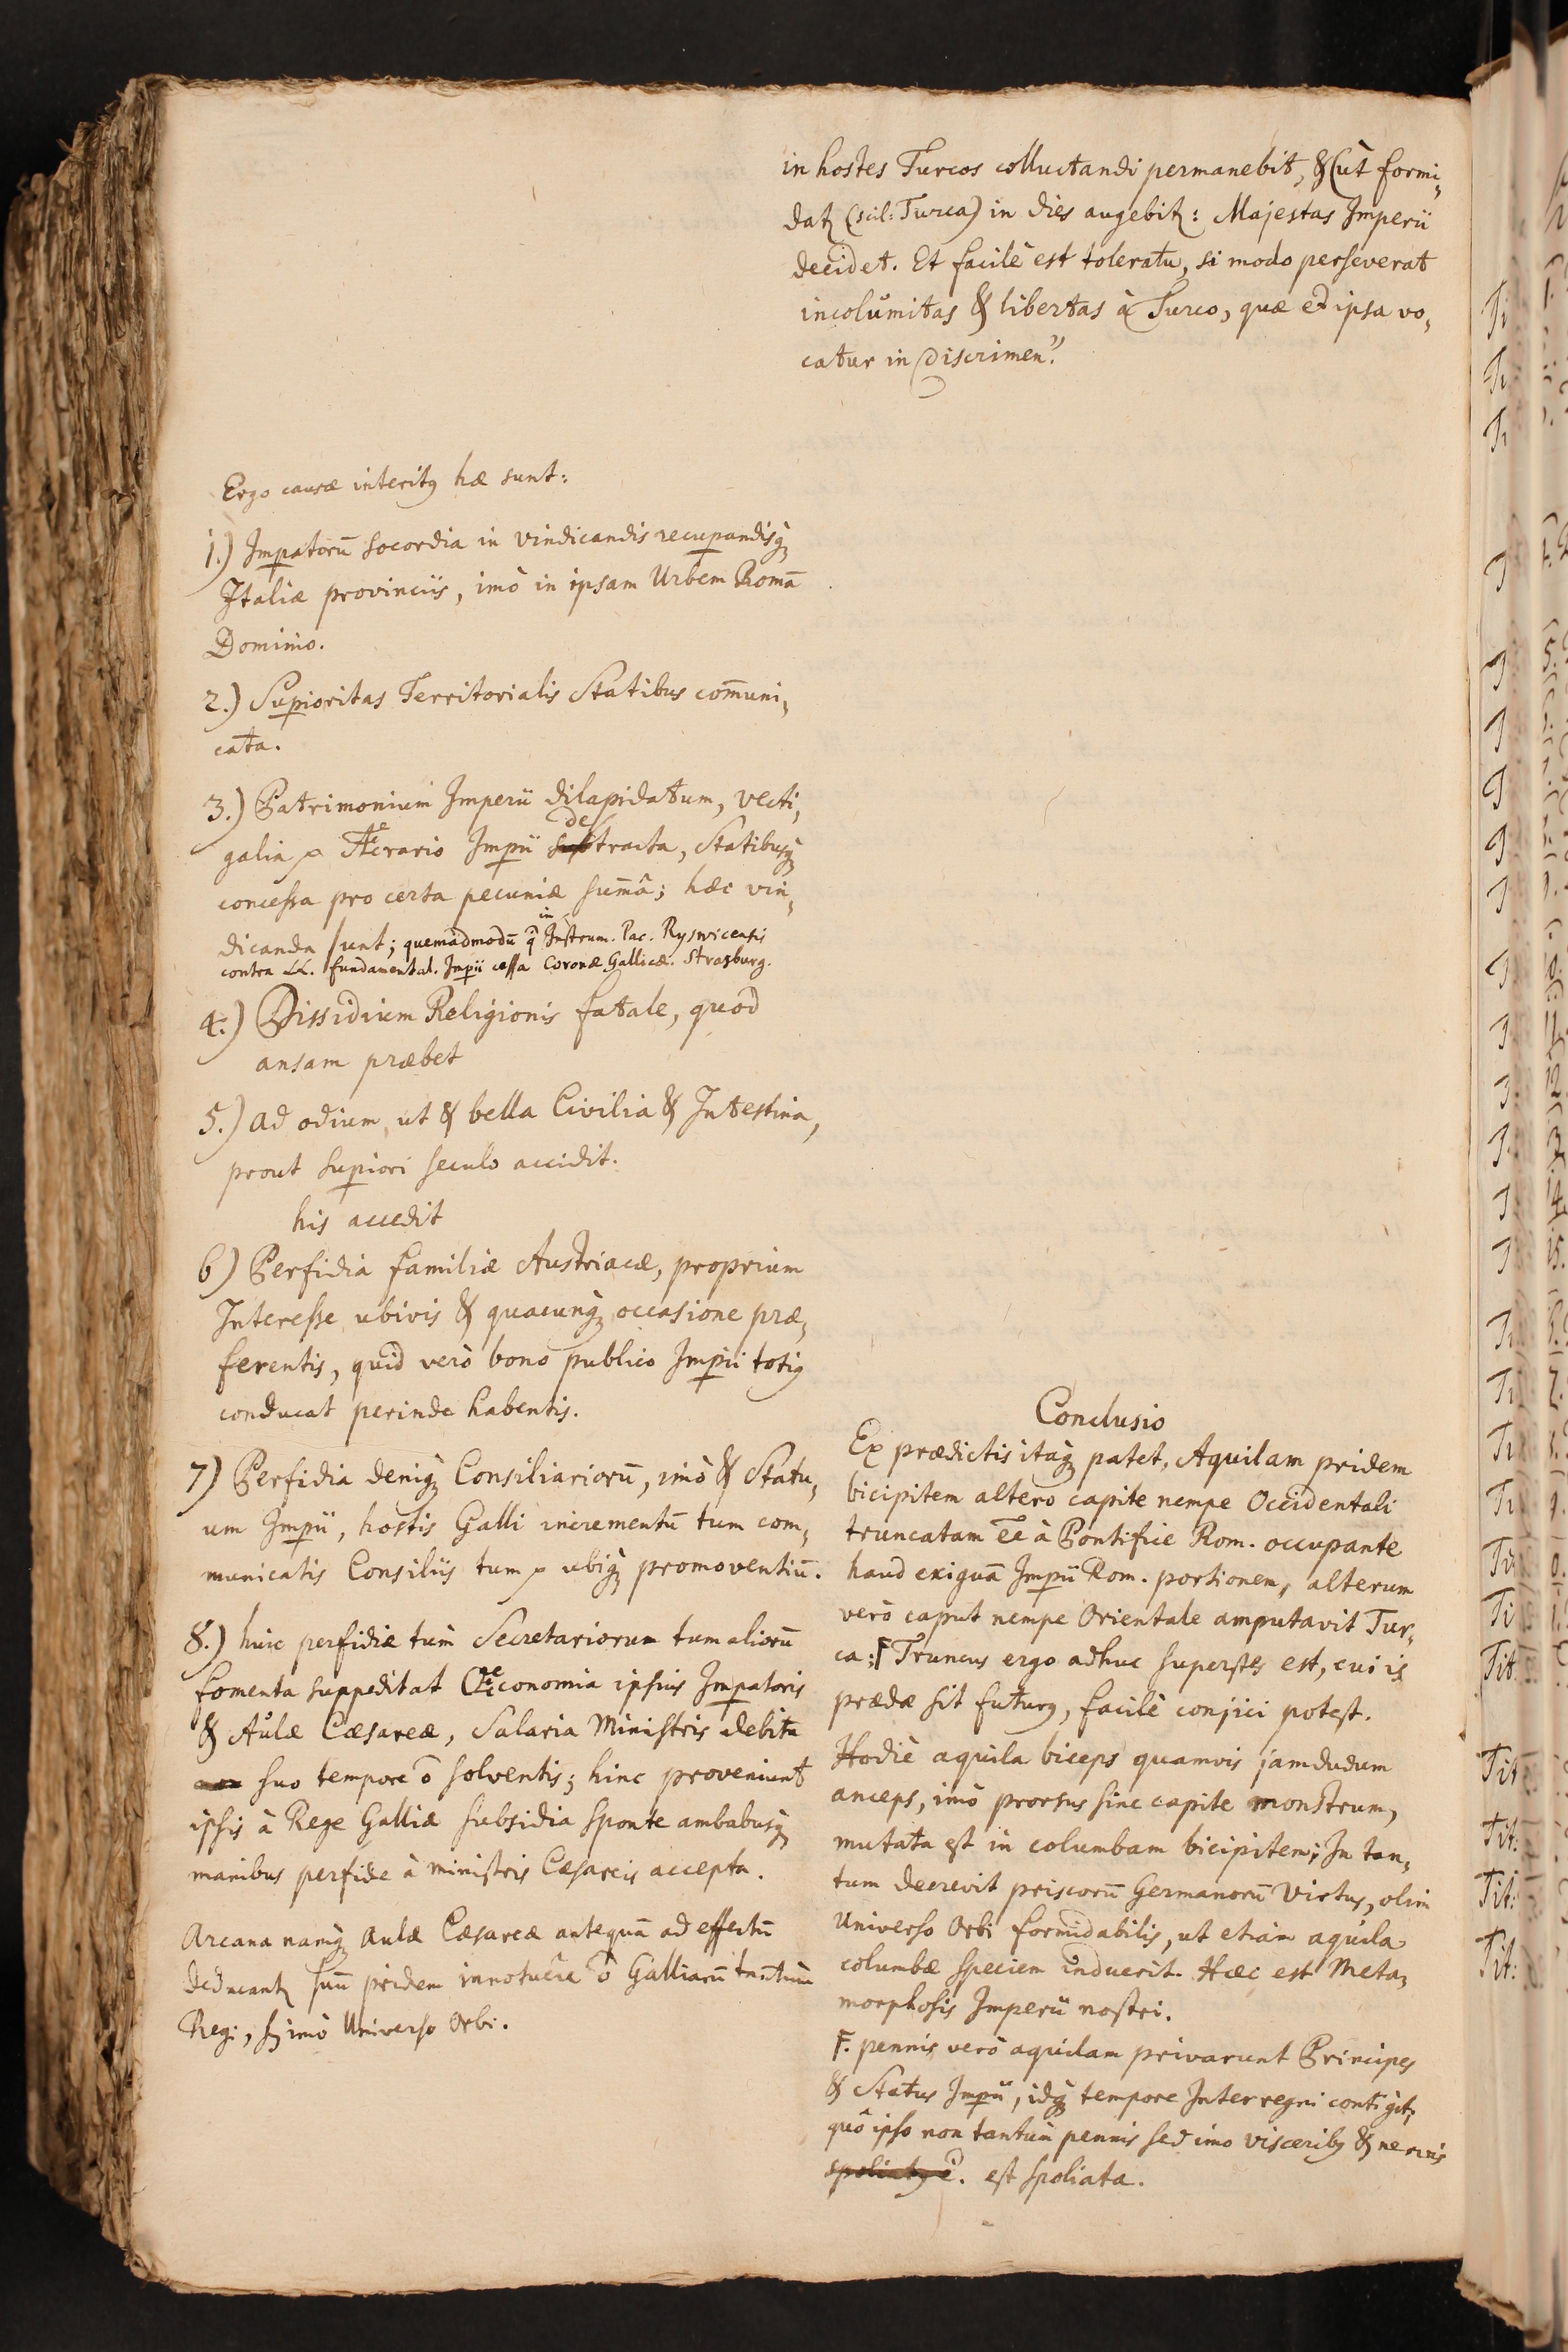 in hostes Turcos colluctandi permanebit, & (ut formi,
dat (scil: Turca) in dies augebit: Majestas Imperii
decidet. Et facilè est toleratu, si modo perseverat
incolumitas & libertas à Turco, quæ et ipsa vo,
catur in discrimen."
Ergo causæ interitꝰ hæ sunt:
1.) Impatorū socordia in vindicandis recupandisq̀
Italiæ provinciis, imò in ipsam Urbem Romā
Dominio.
2.) Supioritas Territorialis Statibus com̄uni,
cata.
3.) Patrimonium Imperii dilapidatum, vecti,
galia Aerario Impii detracta, Statibusq̀
concessa pro certa pecuniæ sum̄â; hæc vin,
dicanda sunt; quemadmodū in Instrum. Pac. Ryswicensis
contra LL. fundamental. Impii cessa Coronæ Gallicæ. Strasburg.
4.) Dissidium Religionis fatale, quod
ansam præbet
5.) ad odium, ut & bella Civilia & Intestina,
prout supiori seculo accidit.
his accedit
6) Perfidia familiæ Austriacæ, proprium
Interesse ubivis & quacunq̀ occasione præ,
ferentis, quid verò bono publico Impii totiꝰ
conducat perinde habentis.
7) Perfidia deniq̀ Consiliariorū, imò & Statu,
um Impii, hostis Galli incrementū tum com,
municatis Consiliis tum ubiq̀ promoventiū.
8.) huic perfidiæ tùm Secretariorum tum aliorū
fomenta suppeditat Oeconomia ipsius Impatoris
& Aulæ Cæsareæ, Salaria Ministris debita
suo tempore ō solventis; hinc proveniunt
ipsis à Rege Galliæ subsidia sponte ambabusq̀
manibus perfide à ministris Cæsareis accepta.
Arcana namq̀ Aulæ Cæsareæ antequā ad effectū
deducant sunt pridem innotuêre ō Galliarū tantùm
Regi, sꝫ imò Universo Orbi.
Conclusio
Ex prædictis itaq̀ patet, Aquilam pridem
bicipitem altero capite nempe Occidentali
truncatam ēe à Pontifice Rom. occupante
haud exiguā Impii Rom. portionem, alterum
verò caput nempe Orientale amputavit Tur,
ca: F Truncus ergo adhuc superstes est, cui is
prædæ sit futurꝰ, facilè conjici potest.
Hodiè aquila biceps quamvis jamdudum
anceps, imò prorsus sine capite monstrum,
mutata est in columbam bicipitem; In tan,
tum decrevit priscorū Germanorū Virtus, olim
Universo Orbi formidabilis, ut etiam aquila
columbæ speciem induerit. Hæc est Meta,
morphosis Imperii nostri.
F. pennis verò aquilam privarunt Principes
& Status Impii, idq̀ tempore Interregni contigit;
quô ipso non tantùm pennis sed imo visceribꝰ & nervis
spoliatꝰ ē. est spoliata.